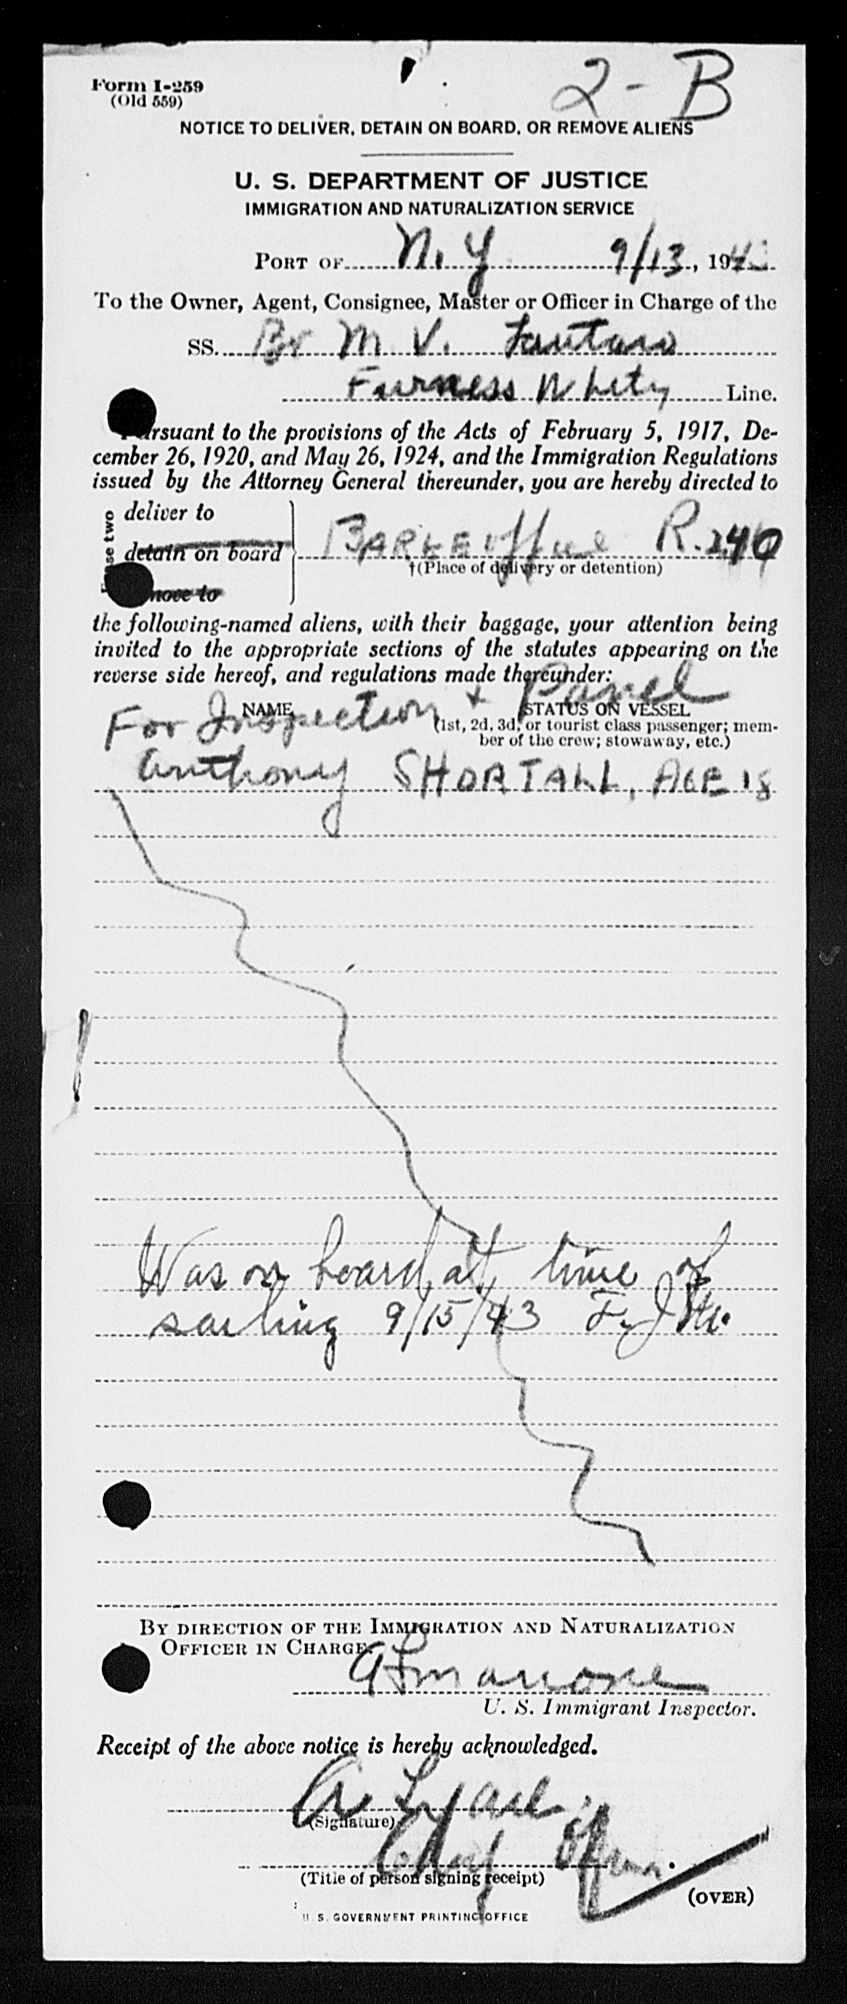 2-B
Form I-259
(Old 559)
NOTICE TO DELIVER, DETAIN ON BOARD, OR REMOVE ALIENS
U. S. DEPARTMENT OF JUSTICE
IMMIGRATION AND NATURALIZATION SERVICE
PORT OF N. Y 9/13, 194
To the Owner, Agent, Consignee, Master or Officer in Charge of the
SS. Br M. V. Lautaro
Furness Whity Line.
Pursuant to the provisions of the Acts of February 5, 1917, De-
cember 26, 1920, and May 26, 1924, and the Immigration Regulations
issued by the Attorney General thereunder, you are hereby directed to
deliver to
detain on board
remove to
Erase two
BARGE office R. 240
†(Place of delivery or detention)
the following-named aliens, with their baggage, your attention being
invited to the appropriate sections of the statutes appearing on the
reverse side hereof, and regulations made thereunder:
For Inspection + Parcel
NAME STATUS ON VESSEL
(1st, 2d, 3d, or tourist class passenger; mem-
ber of the crew; stowaway, etc.)
Anthony SHORTALL, AGE 18
Was on board at time of
sailing 9/15/43
BY DIRECTION OF THE IMMIGRATION AND NATURALIZATION
OFFICER IN CHARGE.
U. S. Immigrant Inspector.
Receipt of the above notice is hereby acknowledged.
(Signature)
Chief Officer.
(Title of person signing receipt)
(OVER)
U. S. GOVERNMENT PRINTING OFFICE